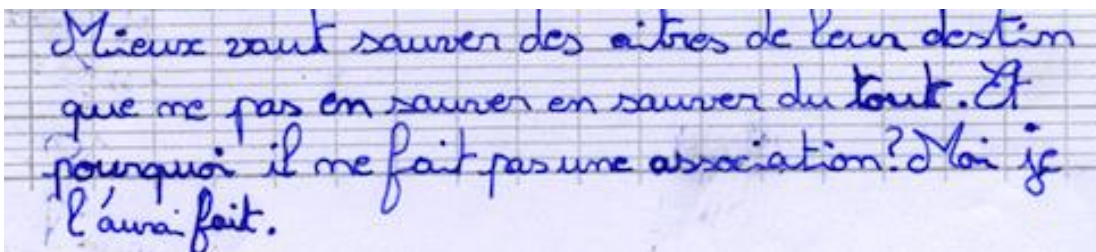 Mieux vaut sauver des aitres de leur destin
que ne pas en sauver en sauver du tout. Et
pourquoi il ne fait pas une association? Moi je
l'aurai fait.